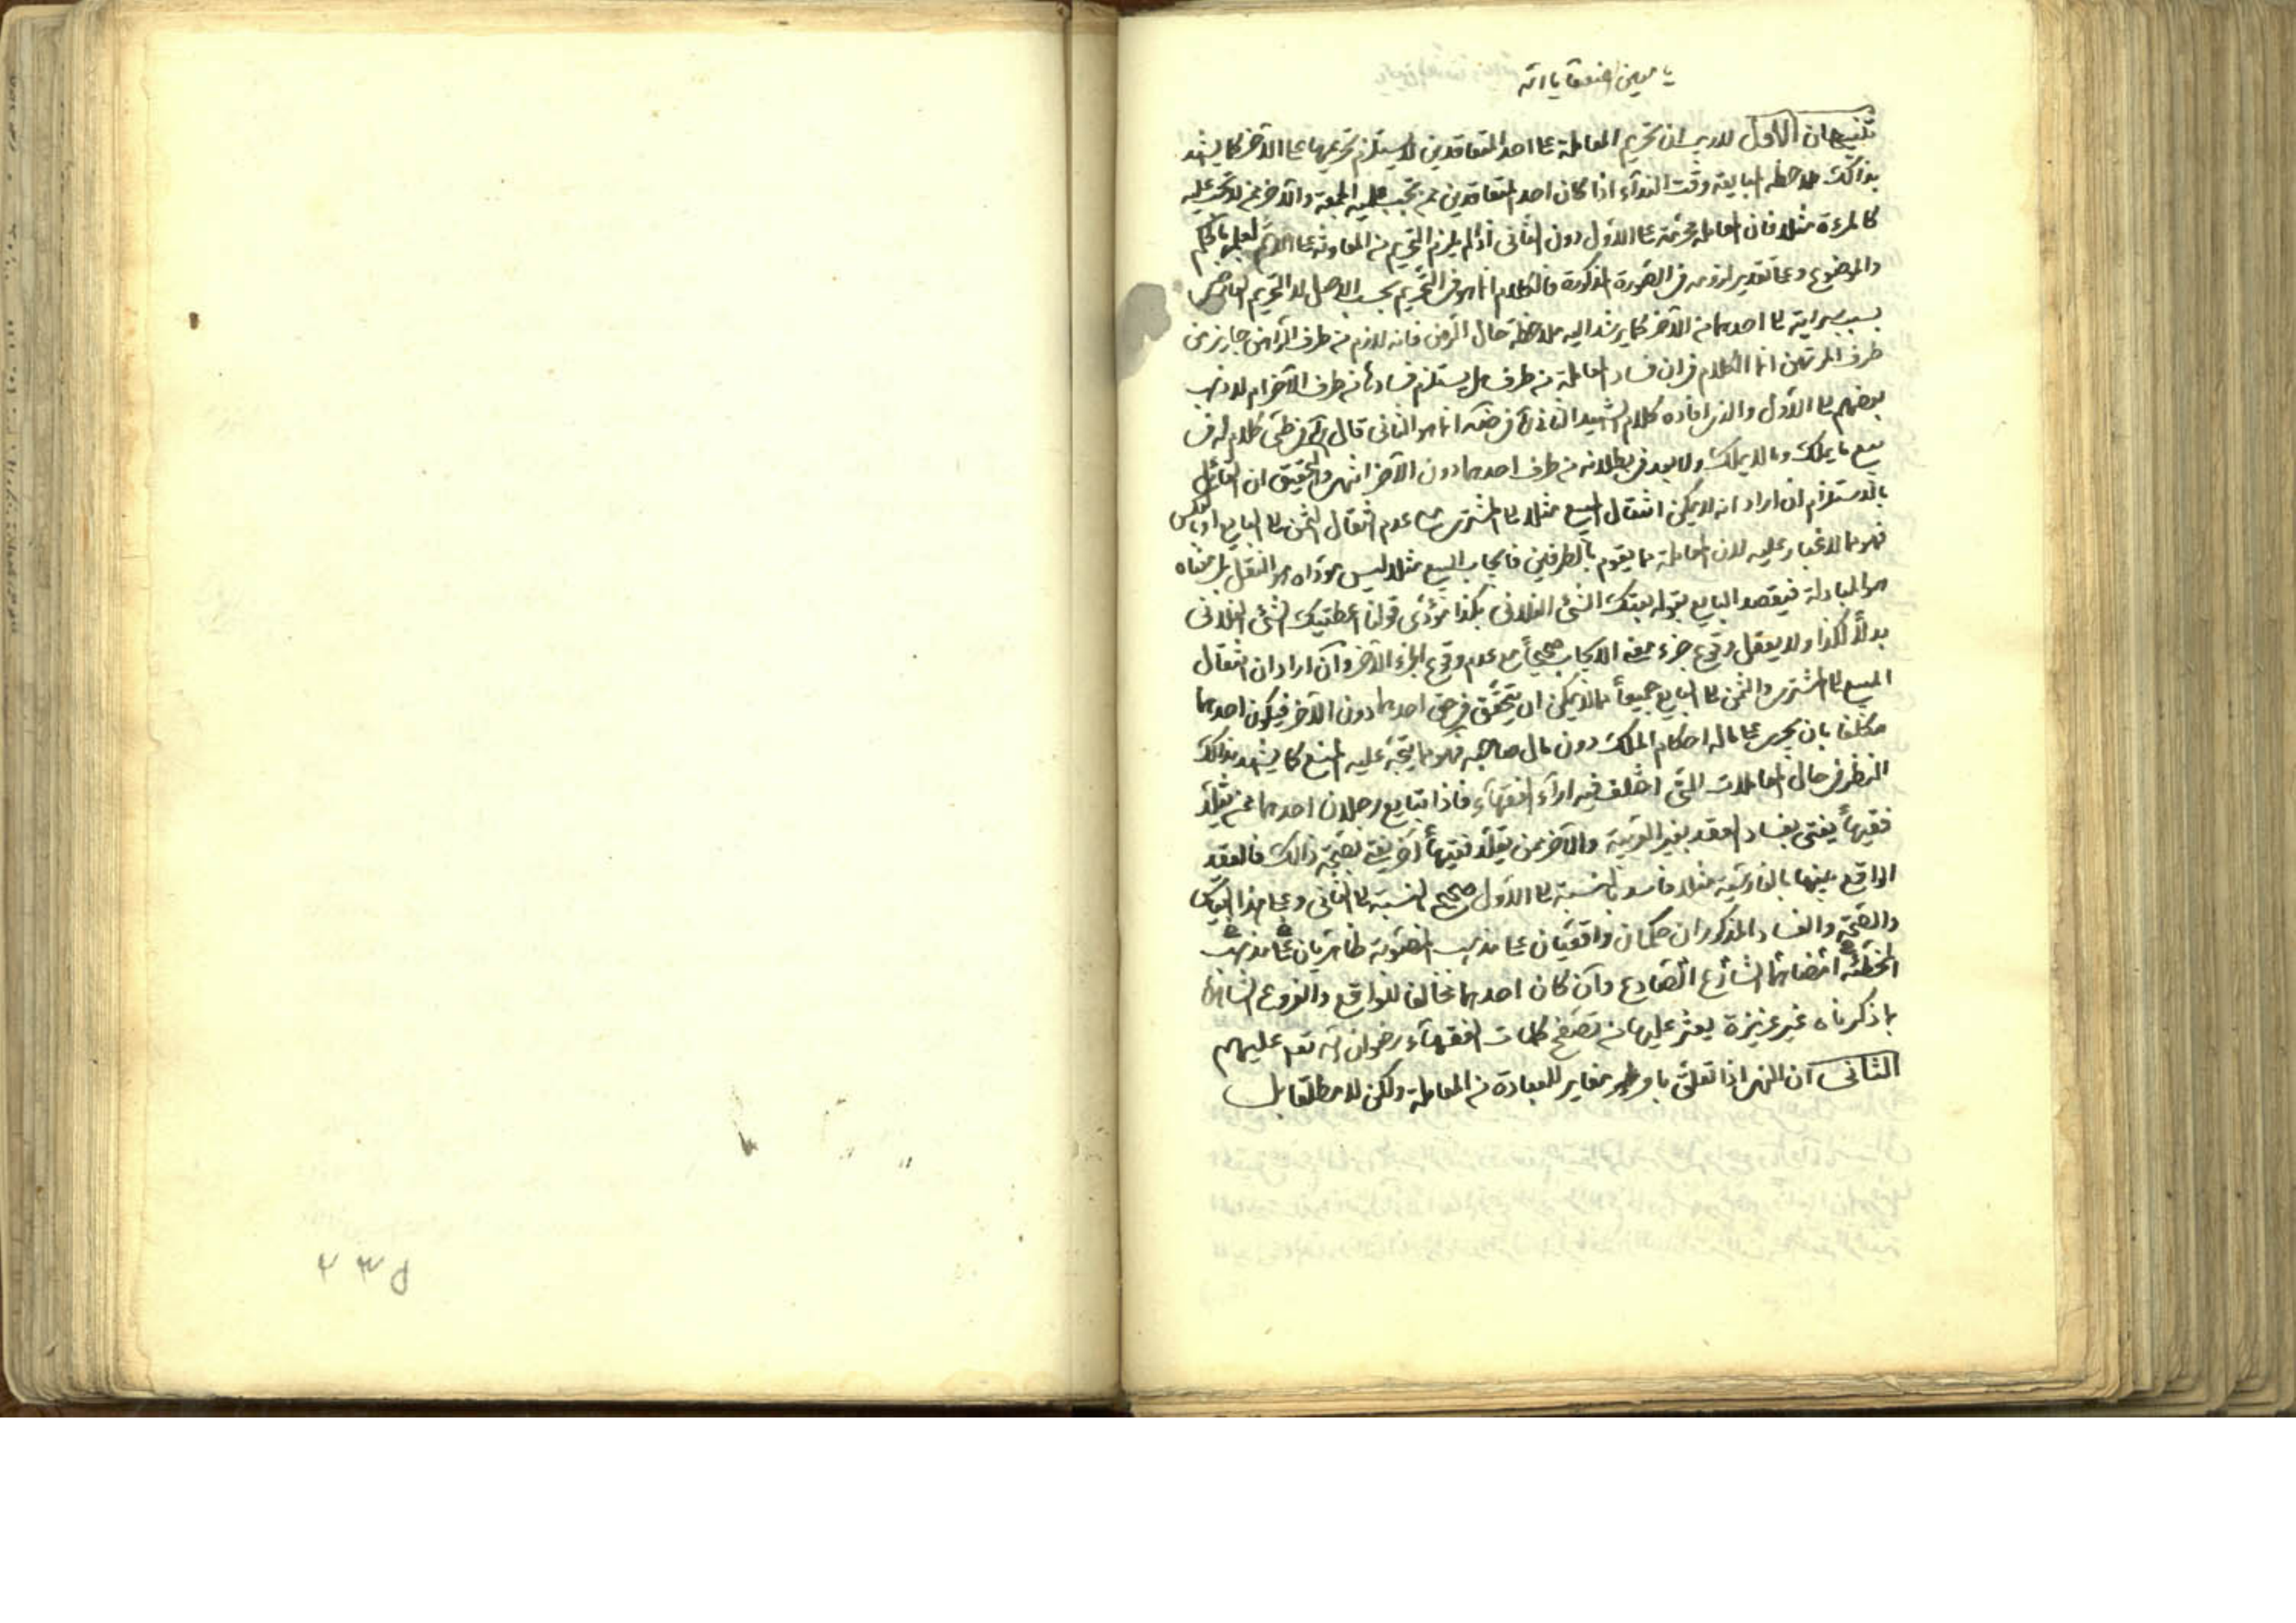 يا معين الضعفاء يا الله
تنبيهان الاول لا ريب ان تحريم المعاملة على احد المتعاقدين لا يستلزم تحريمها على الآخر كما يشهد
بذالك ملاحظة المبايعة وقت النداء اذا كان احد المتعاقدين ممن تجب عليه الجمعة والآخر ممن لا تجب عليه
كالمرءة مثلا فان المعاملة محرمة على الاول دون الثانى اذ لم يلزم التحريم من المعاونة على الاثم لعلمه بالحكم
والموضوع وعلى تقدير لزومه فى الصورة المذكورة فالكلام انما هو فى التحريم بحسب الاصل لا التحريم العارض
بسبب سرايته الى احدهما من الآخر كما يرشد اليه ملاحظة حال الرهن فانه لازم من طرف الراهن جايز من
طرف المرتهن انما الكلام فى ان فساد المعاملة من طرف هل يستلزم فسادها من طرف الآخر ام لا ذهب
بعضهم الى الاول والذى افاده كلام الشهيد الثانى فى انما هو الثانى قال فى طى كلام له فى
بيع ما يملك وما لا يملك ولا بعد فى بطلانه من طرف احدهما دون الآخر انتهى والتحقيق ان القائل
بالاستلزام ان اراد انه لا يمكن انتقال المبيع مثلا الى المشترى مع عدم انتقال الثمن الى البايع او بالعكس
فهو مما لا غبار عليه لان المعاملة مما يقوم بالطرفين فايجاب البيع مثلا ليس مؤداه هو النقل بل معناه
هو المبادلة فيقصد البايع بقوله بعتك الشئ الفلانى بكذا مؤدى قولنا اعطيتك الشئ الفلانى
بدلاً لكذا ولا يعقل وقوع جزء معنى الايجاب صحيحاً مع عدم وقوع الجزء الآخر وان اراد ان انتقال
المبيع الى المشترى والثمن الى البايع جميعاً مما لا يمكن ان يتحقق فى حق احدهما دون الآخر فيكون احدهما
مكلفا بان يجرى على ماله احكام الملك دون مال صاحبه فهو مما يتجه عليه المنع كما يشهد بذالك
النظر فى حال المعاملات التى اختلف فيه اراء الفقهآء فاذا تبايع رجلان احدهما ممن يقلد
فقيهاً يفتى بفساد العقد بغير العربية والآخر ممن يقلد فقيهاً آخر يفتى بصحة ذالك فالعقد
الواقع بينهما بالفارسية مثلا فاسد بالنسبة الى الاول صحيح بالنسبة الى الثانى وعلى هذا القياس
والصحة والفساد المذكوران حكمان واقعيان على مذهب المصوبة ظاهريان على مذهب
المخطئة امضاهما الشارع الصادع وان كان احدهما مخالفا للواقع والفروع الشاهدة
بما ذكرناه غير عزيزة يعثر عليها من تصفح كلمات الفقهآء رضوان الله تعم عليهم
الثانى ان النهى اذا تعلق بامر مغاير للعبادة من المعاملة ولكن لا مطلقا بل